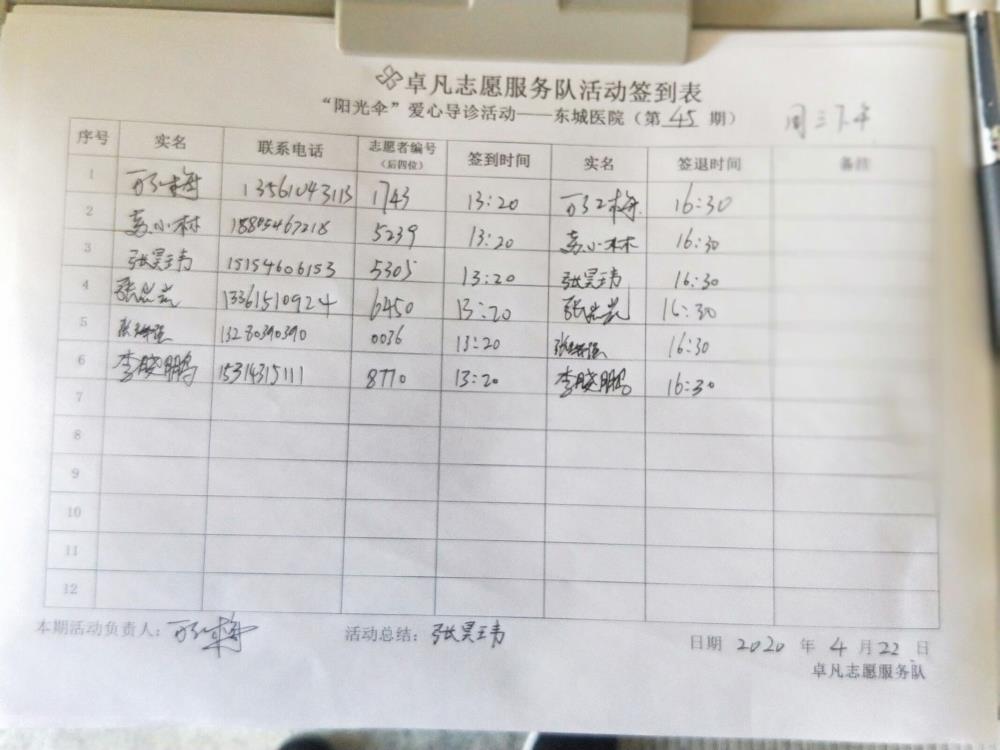 卓凡志愿服务队活动签到表
“阳光伞”爱心导诊活动——东城医院（第 45 期） 周三下午
序号 实名 联系电话 志愿者编号（后四位） 签到时间 实名 签退时间 备注
1 13561043113 1743 13:20 16:30
2 苏小林 15805467218 5239 13:20 苏小林 16:30
3 张昊玮 15154606153 5305 13:20 张昊玮 16:30
4 13361510924 6450 13:20 16:30
5 13280390390 0036 13:20 16:30
6 李晓鹏 15314315111 8770 13:20 李晓鹏 16:30
7
8
9
10
11
12
本期活动负责人： 活动总结：张昊玮 日期 2020 年 4 月 22 日
卓凡志愿服务队